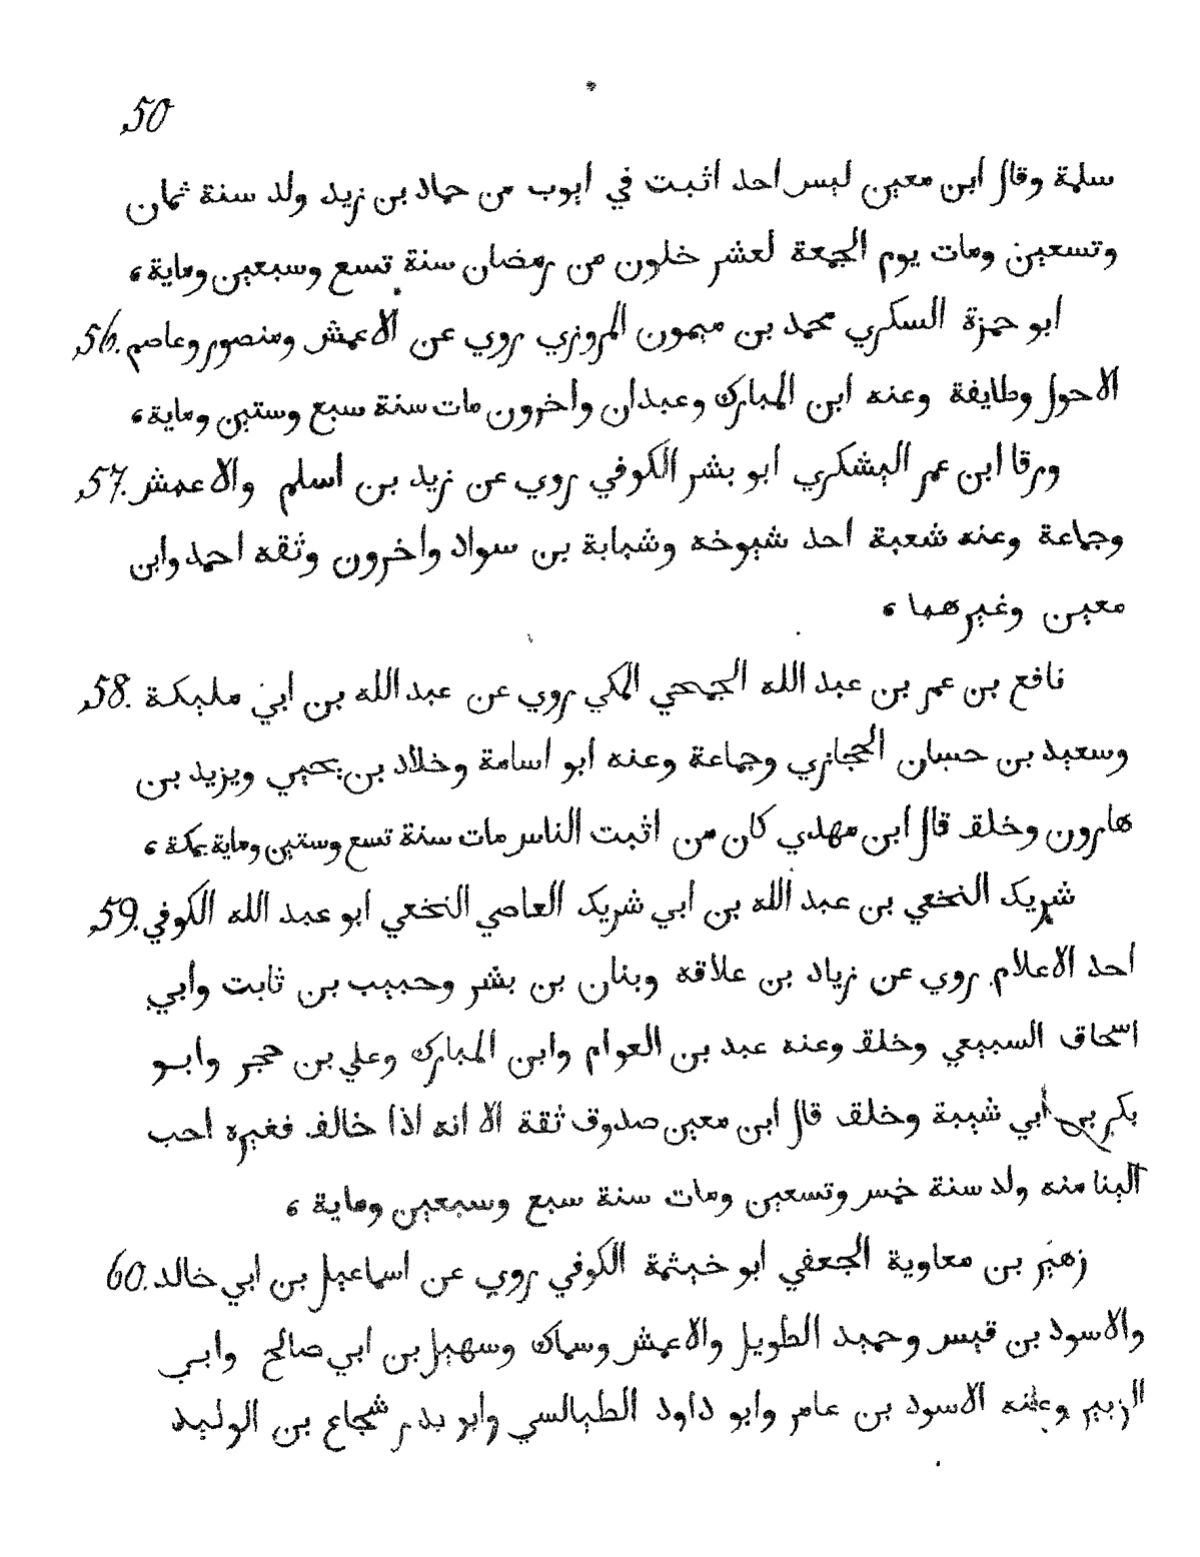 50
سلمة وقال ابن معين ليس احد اثبت في ايوب من حماد بن زيد ولد سنة ثمان
وتسعين ومات يوم الجمعة لعشر خلون من رمضان سنة تسع وسبعين وماية ،
ابو حمزة السكري محمد بن ميمون المروزي روي عن الاعمش ومنصور وعاصم .56
الاحول وطايفة وعنه ابن المبارك وعبدان واخرون مات سنة سبع وستين وماية ،
ورقا ابن عمر اليشكري ابو بشر الكوفي روي عن زيد بن اسلم والاعمش .57
وجماعة وعنه شعبة احد شيوخه وشبابة بن سواد واخرون وثقه احمد وابن
معين وغيرهما ،
نافع بن عمر بن عبد الله الجمحي المكي روي عن عبد الله بن ابي مليكة .58
وسعيد بن حسان الحجازي وجماعة وعنه ابو اسامة وخلاد بن يحيي ويزيد بن
هارون وخلق قال ابن مهدي كان من اثبت الناس مات سنة تسع وستين وماية بمكة ،
شريك النخعي بن عبد الله بن ابي شريك العاصي النخعي ابو عبد الله الكوفي .59
احد الاعلام روي عن زياد بن علاقه وبنان بن بشر وحبيب بن ثابت وابي
اسحاق السبيعي وخلق وعنه عبد بن العوام وابن المبارك وعلي بن حجر وابو
بكر بن ابي شيبة وخلق قال ابن معين صدوق ثقة الا انه اذا خالف فغيره احب
الينا منه ولد سنة خمس وتسعين ومات سنة سبع وسبعين وماية ،
زهير بن معاوية الجعفي ابو خيثمة الكوفي روي عن اسماعيل بن ابي خالد .60
والاسود بن قيس وحميد الطويل والاعمش وسماك وسهيل بن ابي صالح وابي
الزبير وعنه الاسود بن عامر وابو داود الطيالسي وابو بدر شجاع بن الوليد